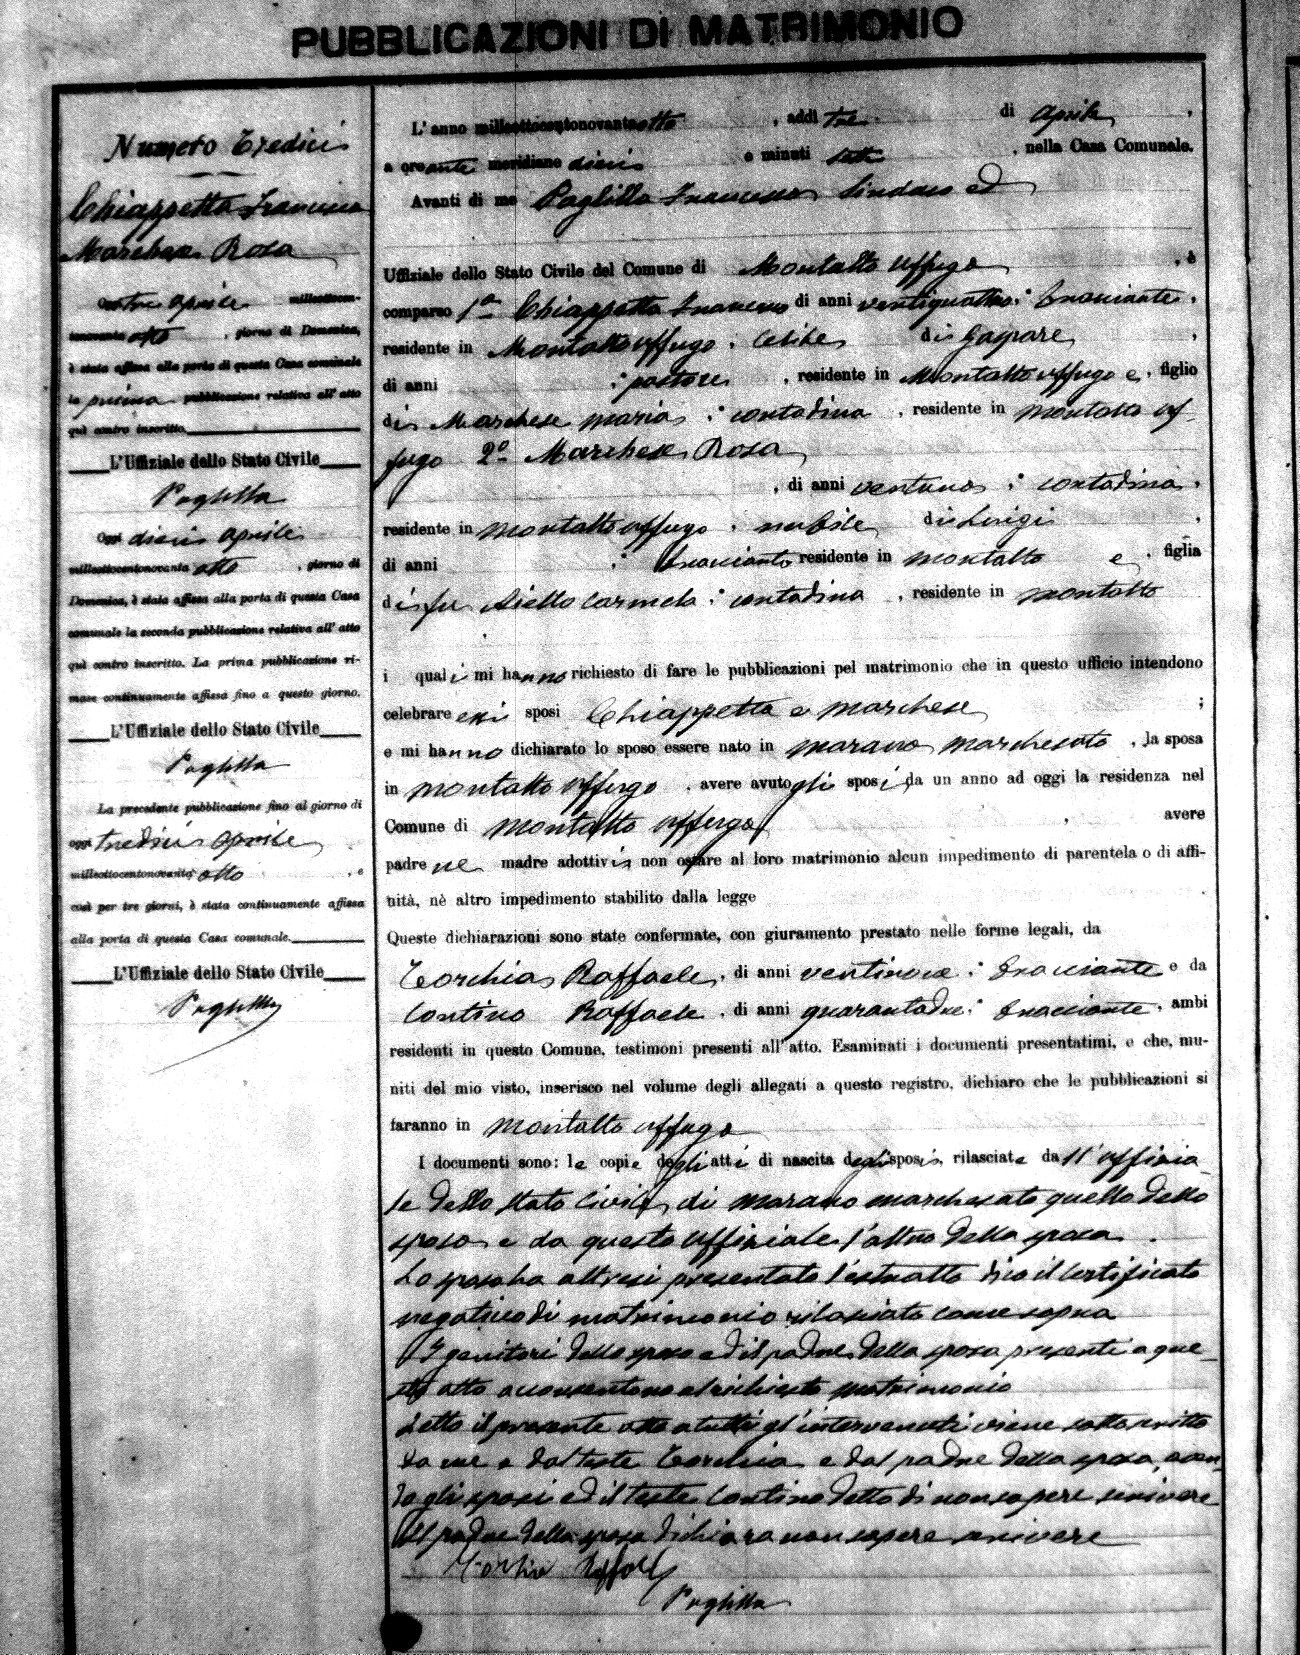 PUBBLICAZIONI DI MATRIMONIO
Numero Tredici
Chiappetta Francesco
Marchese Rosa
Oggi tre aprile millottocen-
tonovanta otto, giorno di Domenica,
è stata affissa alla porta di questa Casa comunale
la prima pubblicazione relativa all' atto
quì contro inscritto.
L'Uffiziale dello Stato Civile
Paglilla
Oggi dieci aprile
millottocentonovanta otto, giorno di
Domenica, è stata affissa alla porta di questa Casa
comunale la seconda pubblicazione relativa all' atto
quì contro inscritto. La prima pubblicazione ri-
mase continuamente affissa fino a questo giorno.
L'Uffiziale dello Stato Civile
Paglilla
La precedente pubblicazione fino al giorno di
oggi tredici aprile
millottocentonovanta otto, e
così per tre giorni, è stata continuamente affissa
alla porta di questa Casa comunale.
L'Uffiziale dello Stato Civile
Paglilla
L' anno millottocentonovanta otto, addì tre di aprile,
a ore ante meridiane dieci e minuti sette, nella Casa Comunale.
Avanti di me Paglilla Francesco Sindaco ed
Uffiziale dello Stato Civile del Comune di Montalto Uffugo, è
comparso 1º Chiappetta Francesco di anni ventiquattro; bracciante,
residente in Montalto Uffugo, celibe di Gaspare,
di anni ; pastore, residente in Montalto Uffugo e, figlio
di Marchese Maria; contadina, residente in Montalto Uf-
fugo 2º Marchese Rosa
, di anni ventuno; contadina,
residente in Montalto Uffugo, nubile di Luigi,
di anni ; bracciante residente in Montalto e, figlia
di fu Aiello Carmela; contadina, residente in Montalto
i quali mi hanno richiesto di fare le pubblicazioni pel matrimonio che in questo ufficio intendono
celebrare essi sposi Chiappetta e Marchese;
e mi hanno dichiarato lo sposo essere nato in Marano Marchesato, la sposa
in Montalto Uffugo, avere avuto gli sposi da un anno ad oggi la residenza nel
Comune di Montalto Uffugo, avere
padre ne madre adottivi non ostare al loro matrimonio alcun impedimento di parentela o di affi-
nità, nè altro impedimento stabilito dalla legge
Queste dichiarazioni sono state confermate, con giuramento prestato nelle forme legali, da
Torchia Raffaele, di anni ventinove; bracciante e da
Contino Raffaele, di anni quarantadue; bracciante, ambi
residenti in questo Comune, testimoni presenti all' atto. Esaminati i documenti presentatimi, e che, mu-
niti del mio visto, inserisco nel volume degli allegati a questo registro, dichiaro che le pubblicazioni si
faranno in Montalto Uffugo
I documenti sono: le copie degli atti di nascita degli sposi, rilasciate da ll'uffizia
le dello stato civile di Marano Marchesato quello dello
sposo e da questo uffiziale l'altro della sposa.
Lo sposo ha altresi presentato l'estratto dico il certificato
negativo di matrimonio rilasciato come sopra
I genitori dello sposo ed il padre della sposa presenti a que-
sto atto acconsentono al richiesto matrimonio
Letto il presente atto a tutti gl'intervenuti viene sottoscritto
da me e dal teste Torchia e dal padre della sposa, aven-
do gli sposi ed il teste Contino detto di non sapere scrivere
Il padre della sposa dichiara non sapere scrivere
Torchia Raffaele
Paglilla